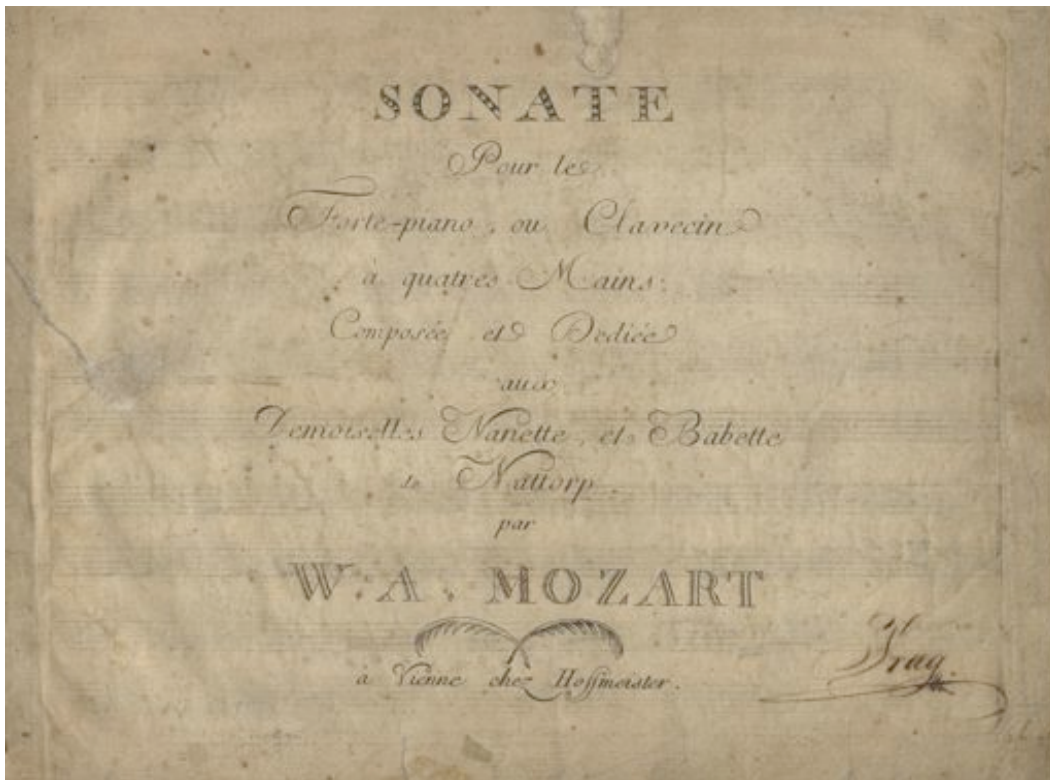 SONATE
Pour le
Forte-piano, ou Clavecin
à quatres Mains.
Composée et Dediée
aux
Demoiselles Nanette, et Babette
de Nattorp.
par
W. A. MOZART
à Vienne chez Hoffmeister.